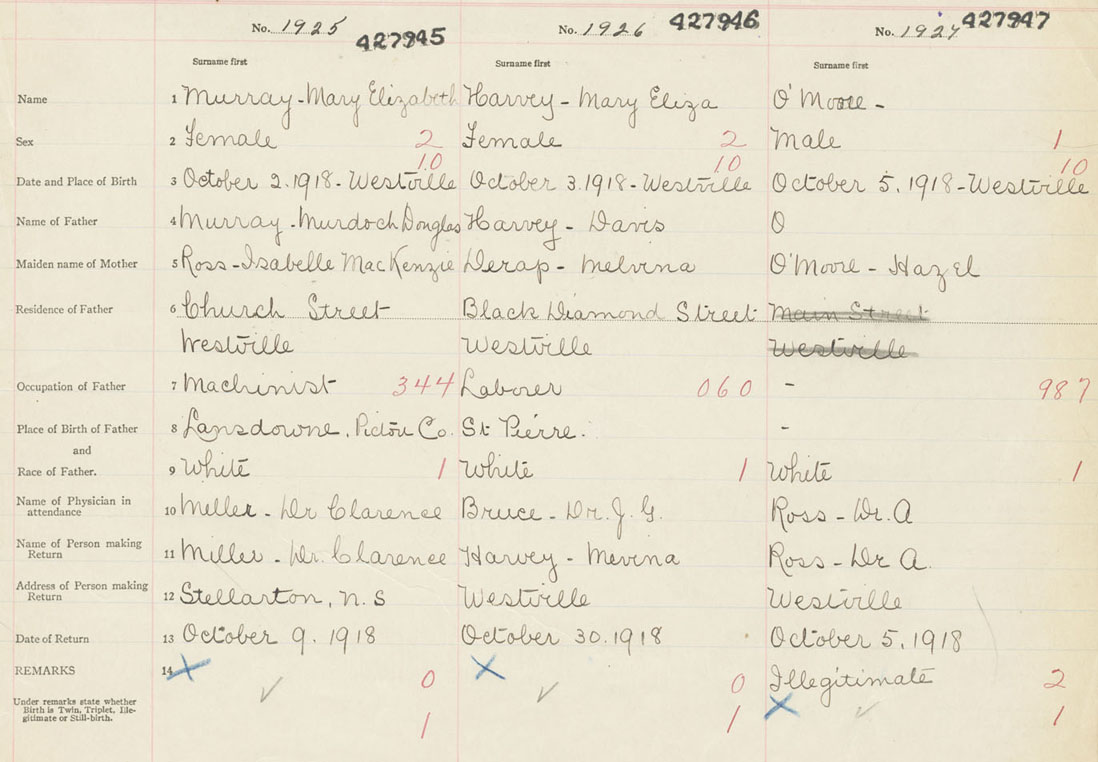 No. 1925 427945 No. 1926 427946 No. 1927 427947
Surname first Surname first Surname first
Name 1 Murray - Mary Elizabeth Harvey - Mary Eliza O'Moore -
Sex 2 Female 2 Female 2 Male 1
10 10 10
Date and Place of Birth 3 October 2. 1918 - Westville October 3. 1918 - Westville October 5. 1918 - Westville
Name of Father 4 Murray - Murdoch Douglas Harvey - Davis O
Maiden name of Mother 5 Ross - Isabelle MacKenzie Derap - Melvina O'Moore - Hazel
Residence of Father 6 Church Street Black Diamond Street Main Street
Westville Westville Westville
Occupation of Father 7 Machinist 344 Laborer 060 - 987
Place of Birth of Father 8 Lansdowne, Pictou Co. St. Pierre. -
and
Race of Father. 9 White 1 White 1 White 1
Name of Physician in
attendance 10 Miller - Dr Clarence Bruce - Dr. J. G. Ross - Dr. A
Name of Person making
Return 11 Miller - Dr. Clarence Harvey - Mevina Ross - Dr A.
Address of Person making
Return 12 Stellarton, N. S Westville Westville
Date of Return 13 October 9. 1918 October 30. 1918 October 5. 1918
REMARKS 14 X 0 X 0 Illegitimate 2
Under remarks state whether
Birth is Twin, Triplet, Ille-
gitimate or Still-birth. ✓ 1 ✓ 1 X ✓ 1